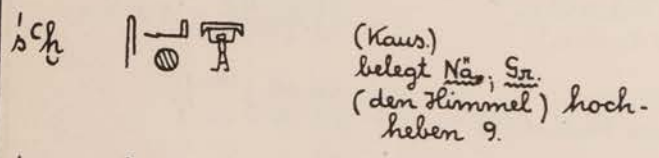 śꜥḫ 𓋴𓂝𓐍
(Kaus.)
belegt Nä.; Gr.
(den Himmel) hoch-
heben 9.